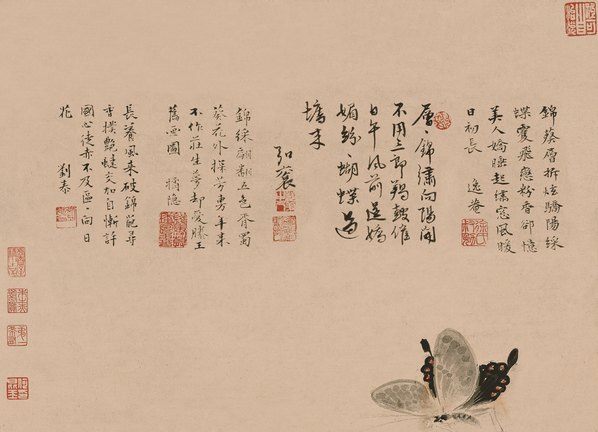 錦葵層折炫驕陽綵
蝶雙飛戀粉香卻憶
美人嬌睡起繡窓風暖
日初長 逸菴
層、錦繡向陽開
不用三郎羯鼓催
日午風前逞嬌
媚紛、蝴蝶過
墻來
弘襄
錦綵翩翻五色 蜀
葵花外探芳 年來
不作莊生夢却愛滕王
舊畫圖 橘隱
長養風來破錦葩尋
香撲艷蜨交加自慚許
國心徒赤不及區、向日
花 劉泰